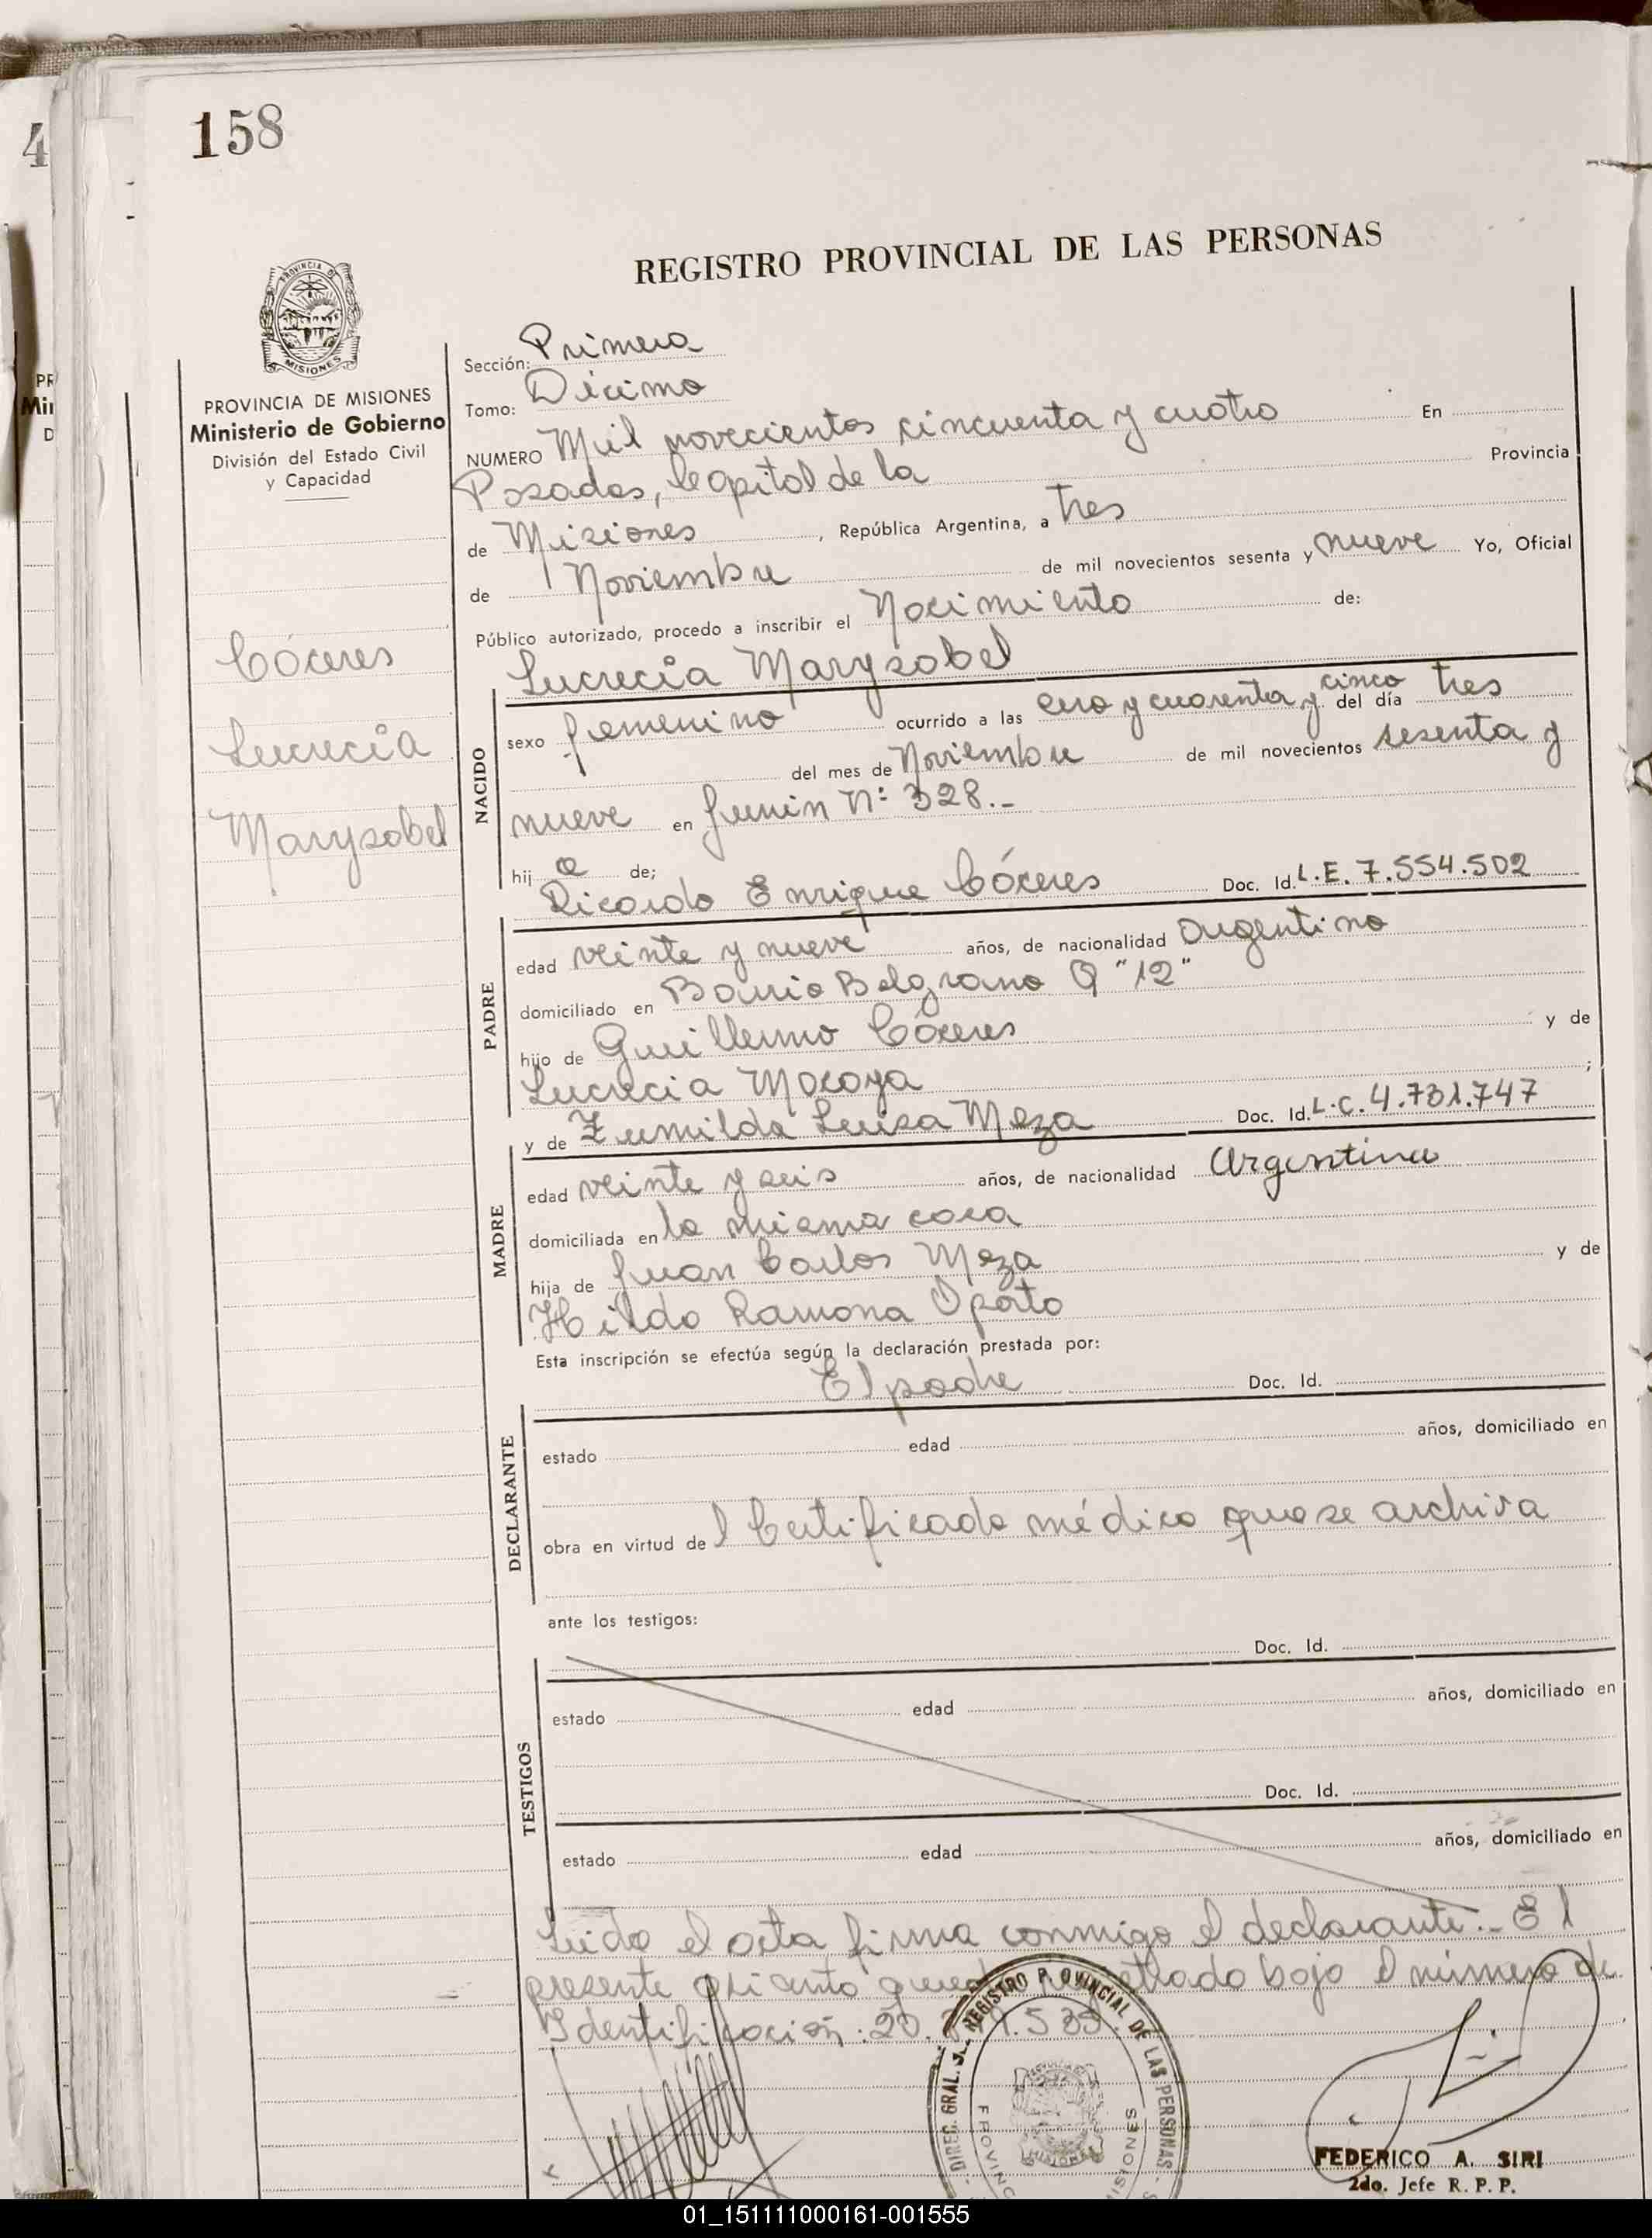 4
158
REGISTRO PROVINCIAL DE LAS PERSONAS
PROVINCIA DE MISIONES
Ministerio de Gobierno
División del Estado Civil
y Capacidad
Cáceres
Lucrecia
Marysabel
Sección: Primera
Tomo: Décimo
NUMERO Mil novecientos cincuenta y cuatro En
Posadas, Capital de la Provincia
de Misiones, República Argentina, a tres
de Noviembre de mil novecientos sesenta y nueve Yo, Oficial
Público autorizado, procedo a inscribir el Nacimiento de:
Lucrecia Marysabel
NACIDO
sexo femenino ocurrido a las cero y cuarenta y cinco del día tres
del mes de Noviembre de mil novecientos sesenta y
nueve en Junin Nº 328.-
hij a de;
Ricardo Enrique Cáceres Doc. Id. L.E. 7.554.502
PADRE
edad veinte y nueve años, de nacionalidad Argentina
domiciliado en Barrio Belgrano Q "12"
hijo de Guillermo Cáceres y de
Lucrecia Macoya ;
y de Zumilda Luisa Meza Doc. Id. L.C. 4.731.747
MADRE
edad veinte y seis años, de nacionalidad Argentina
domiciliada en la misma casa
hija de Juan Carlos Meza y de
Hilda Ramona Oporto
Esta inscripción se efectúa según la declaración prestada por:
El padre Doc. Id.
DECLARANTE
estado edad años, domiciliado en
obra en virtud del Certificado médico que se archiva
ante los testigos:
Doc. Id.
TESTIGOS
estado edad años, domiciliado en
Doc. Id.
estado edad años, domiciliado en
Leida el acta firma conmigo el declarante.- El
presente asiento bajo el número de
Identificación: 20.
DIREC. GRAL. REGISTRO PROVINCIAL DE LAS PERSONAS
FEDERICO A. SIRI
2do. Jefe R. P. P.
01_151111000161-001555